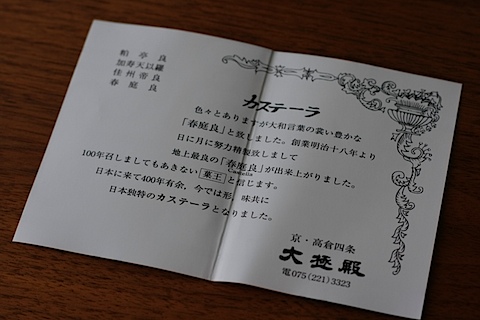 粕亭良
加寿天以羅
佳州帝良
春庭良
カステーラ
色々とありますが大和言葉の裳い豊かな
「春庭良」と致しました。創業明治十八年より
日に月に努力精製致しまして
地上最良の「春庭良」が出来上がりました。
Castella
100年召しましてもあきない菓王と信じます。
日本に来て400年有余、今では形、味共に
日本独特のカステーラとなりました。
京・高倉四条
大極殿
電075(221)3323